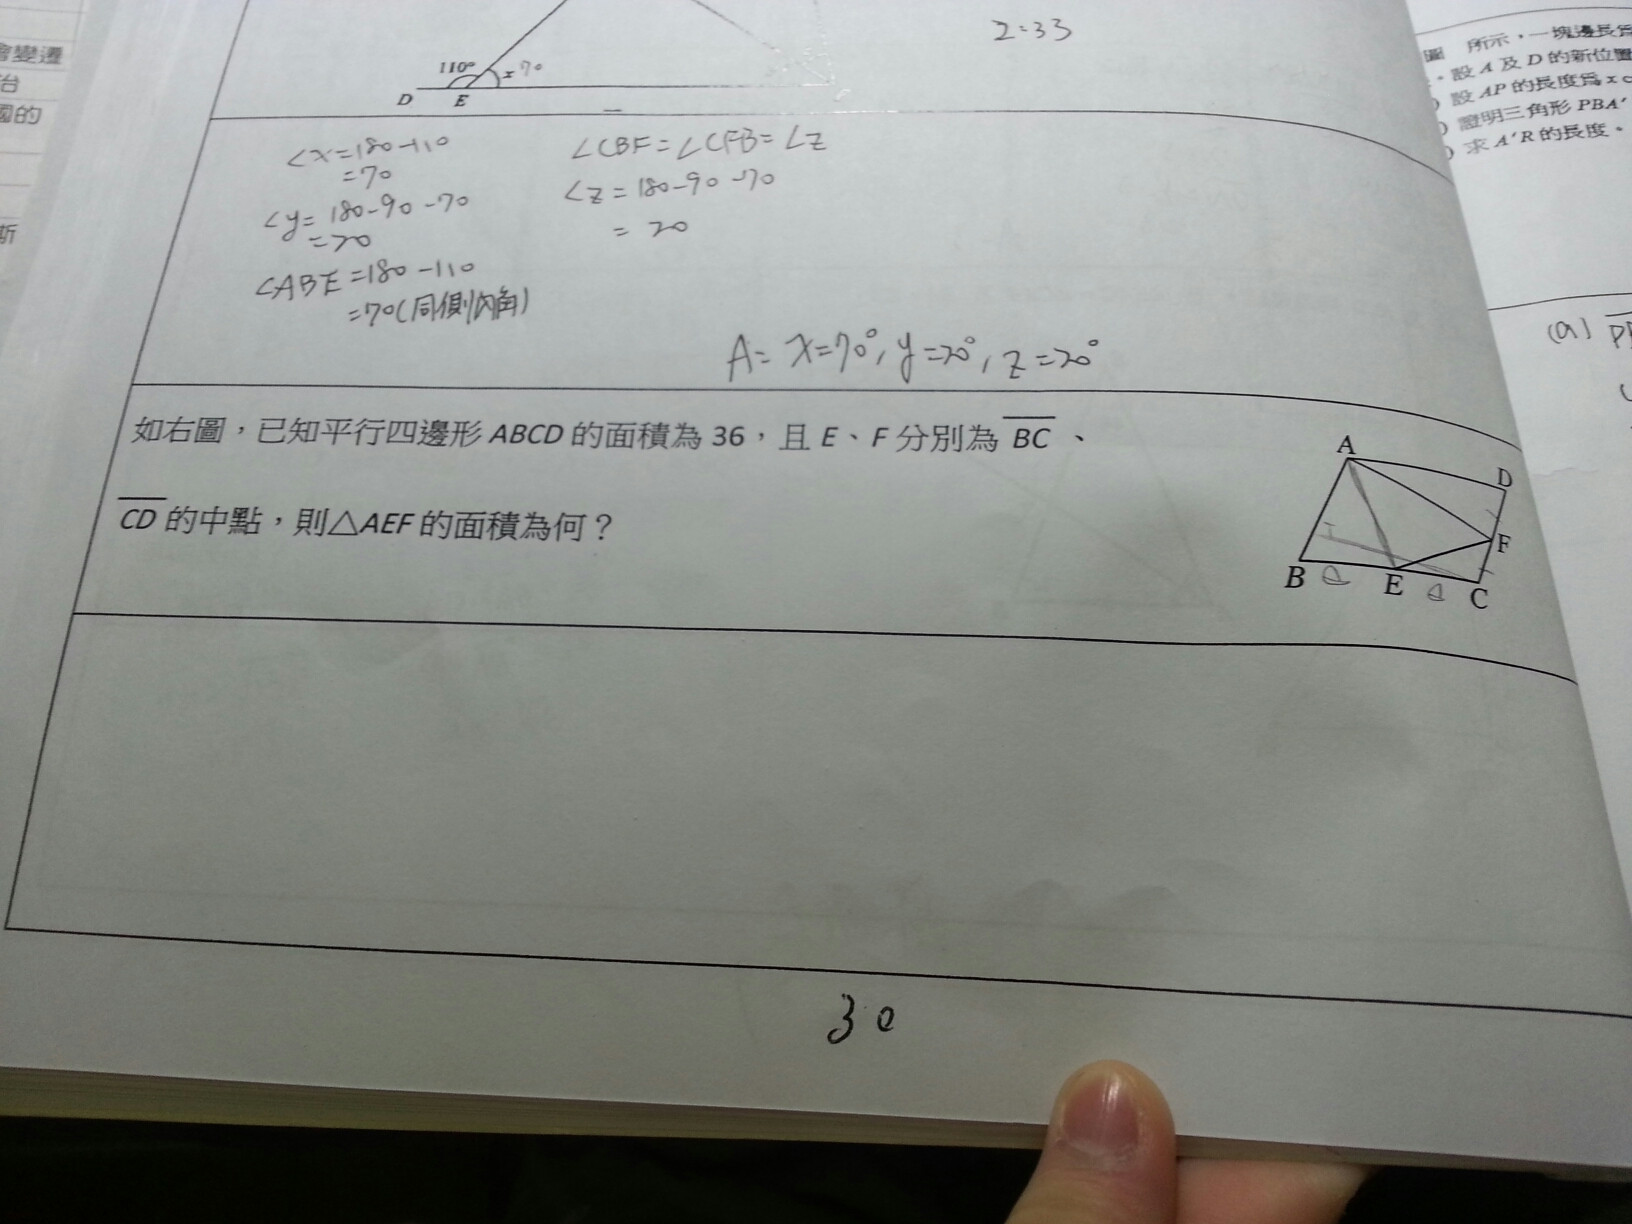 會變遷
治
國的
斯
Z=33
110°
x 70
D E
∠x=180-110
=70
∠y=180-90-70
=20
∠ABE=180-110
=70(同側內角)
∠CBF=∠CFB=∠Z
∠Z=180-90-70
= 20
A= x=70°, y=20°, z=20°
如右圖，已知平行四邊形 ABCD 的面積為 36，且 E、F 分別為 BC 、
CD 的中點，則△AEF 的面積為何？
A
D
F
B E C
30
圖 所示，一塊邊長為
設 A 及 D 的新位置
設 AP 的長度為 x c
證明三角形 PBA'
求 A'R 的長度。
(a)